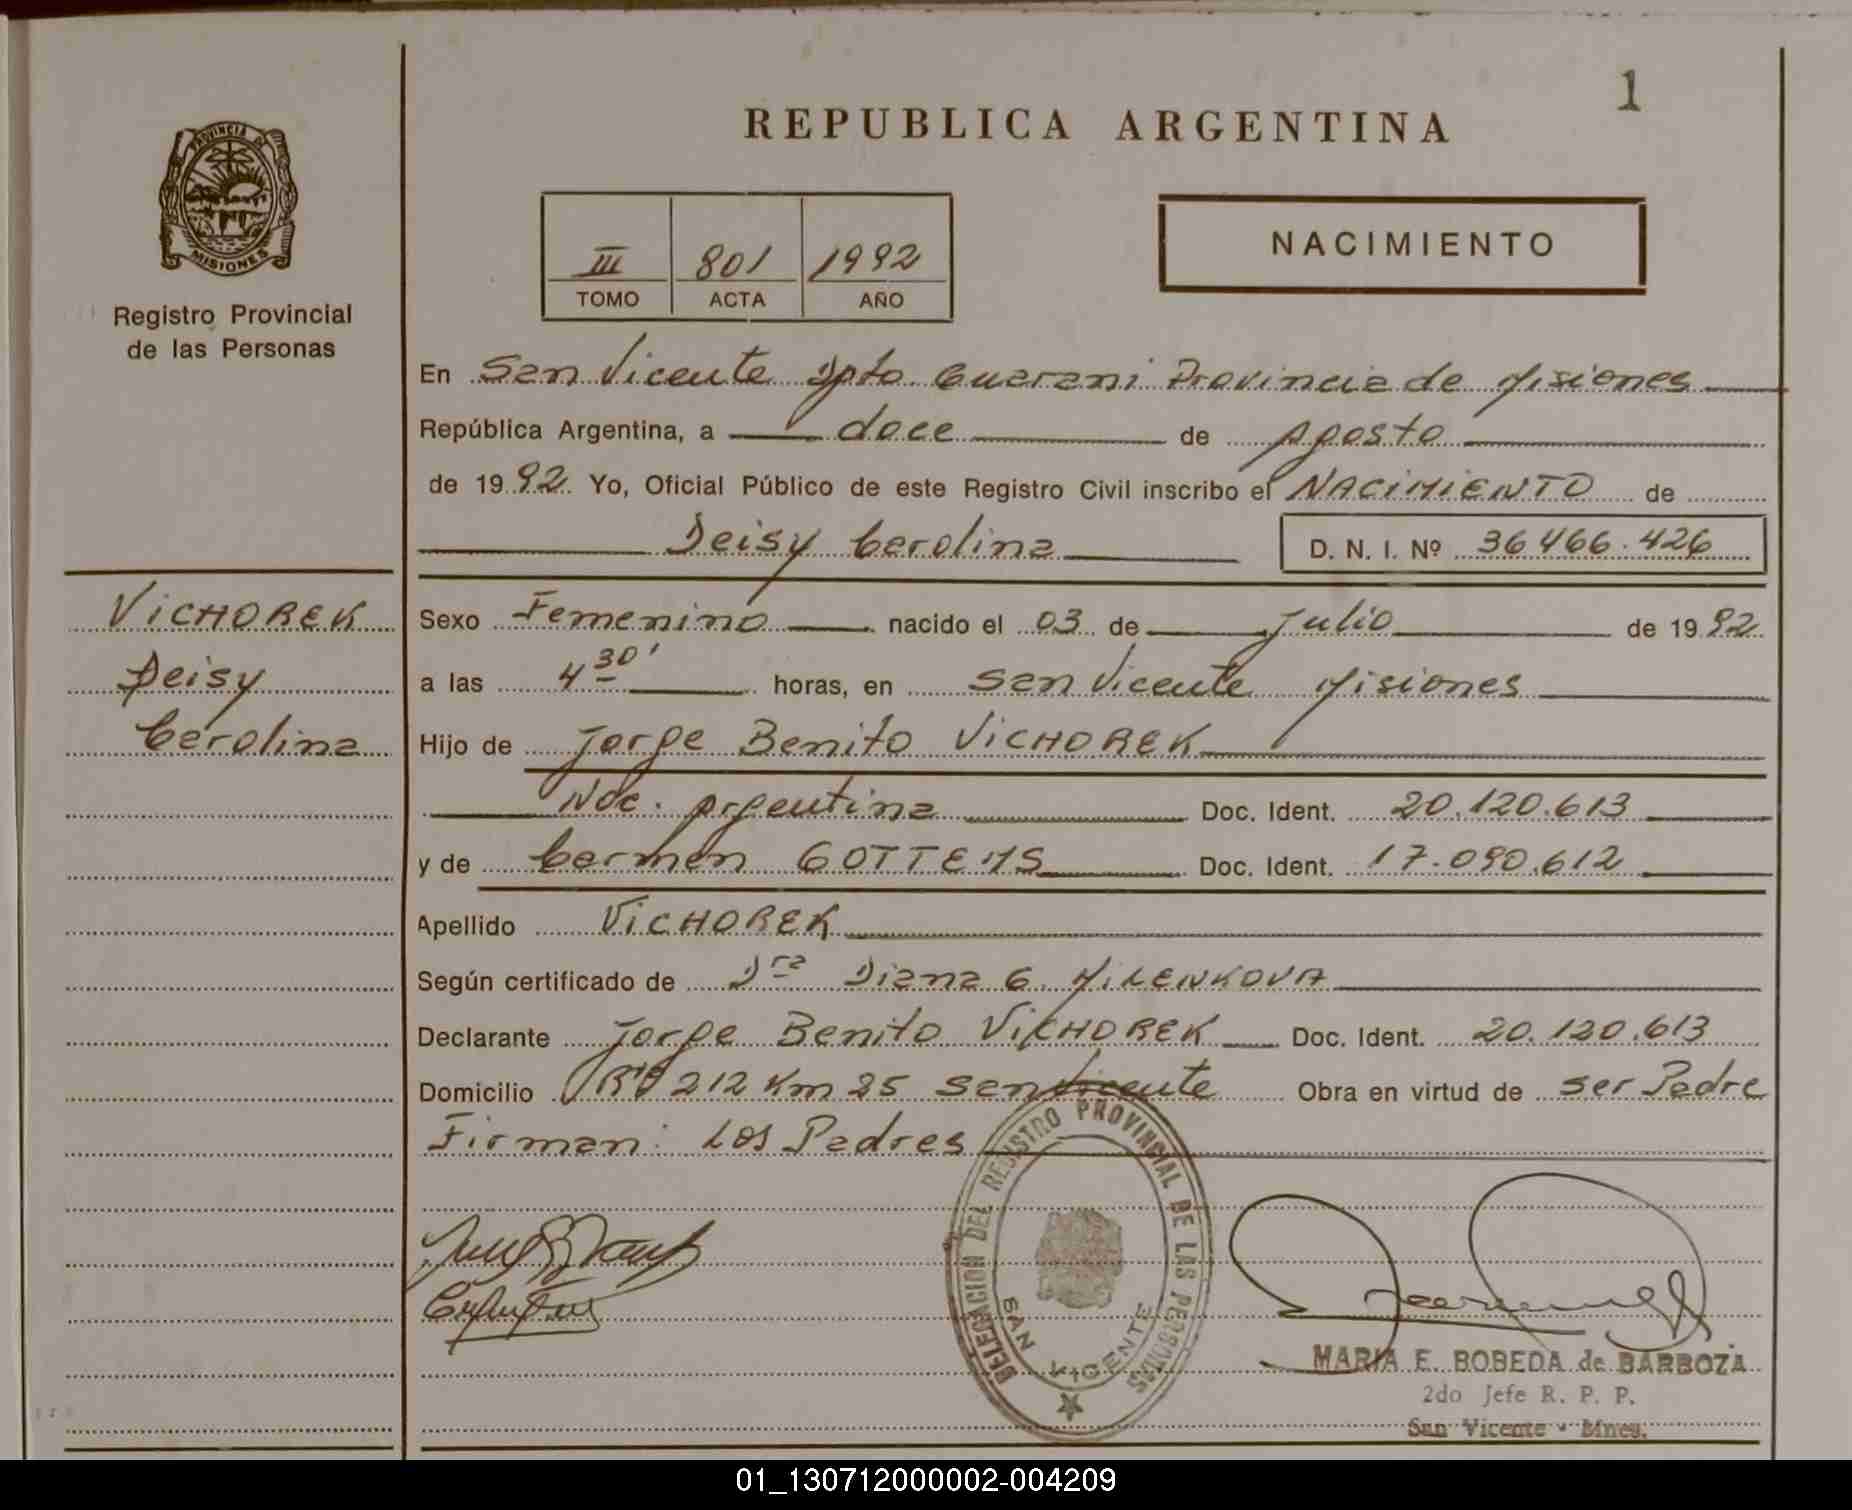 1
REPUBLICA ARGENTINA
PROVINCIA DE
MISIONES
Registro Provincial
de las Personas
III 801 1992
TOMO ACTA AÑO
NACIMIENTO
En San Vicente Dpto Guarani Provincia de Misiones
República Argentina, a doce de Agosto
de 1992 Yo, Oficial Público de este Registro Civil inscribo el NACIMIENTO de
Deisy Carolina D. N. I. Nº 36466.426
VICHOREK
Deisy
Carolina
Sexo Femenino nacido el 03 de Julio de 1992
a las 4 30' horas, en San Vicente Misiones
Hijo de Jorge Benito VICHOREK
Nac. Argentina Doc. Ident. 20.120.613
y de Carmen GOTTEMS Doc. Ident. 17.090.612
Apellido VICHOREK
Según certificado de Dra Diana G. MILENKOVA
Declarante Jorge Benito VICHOREK Doc. Ident. 20.120.613
Domicilio 212 Km 25 San Vicente Obra en virtud de ser Padre
Firman: Los Padres
DELEGACION DEL REGISTRO PROVINCIAL DE LAS PERSONAS
SAN VICENTE
MARIA E. BOBEDA de BARBOZA
2do Jefe R. P. P.
San Vicente - Mnes.
01_130712000002-004209